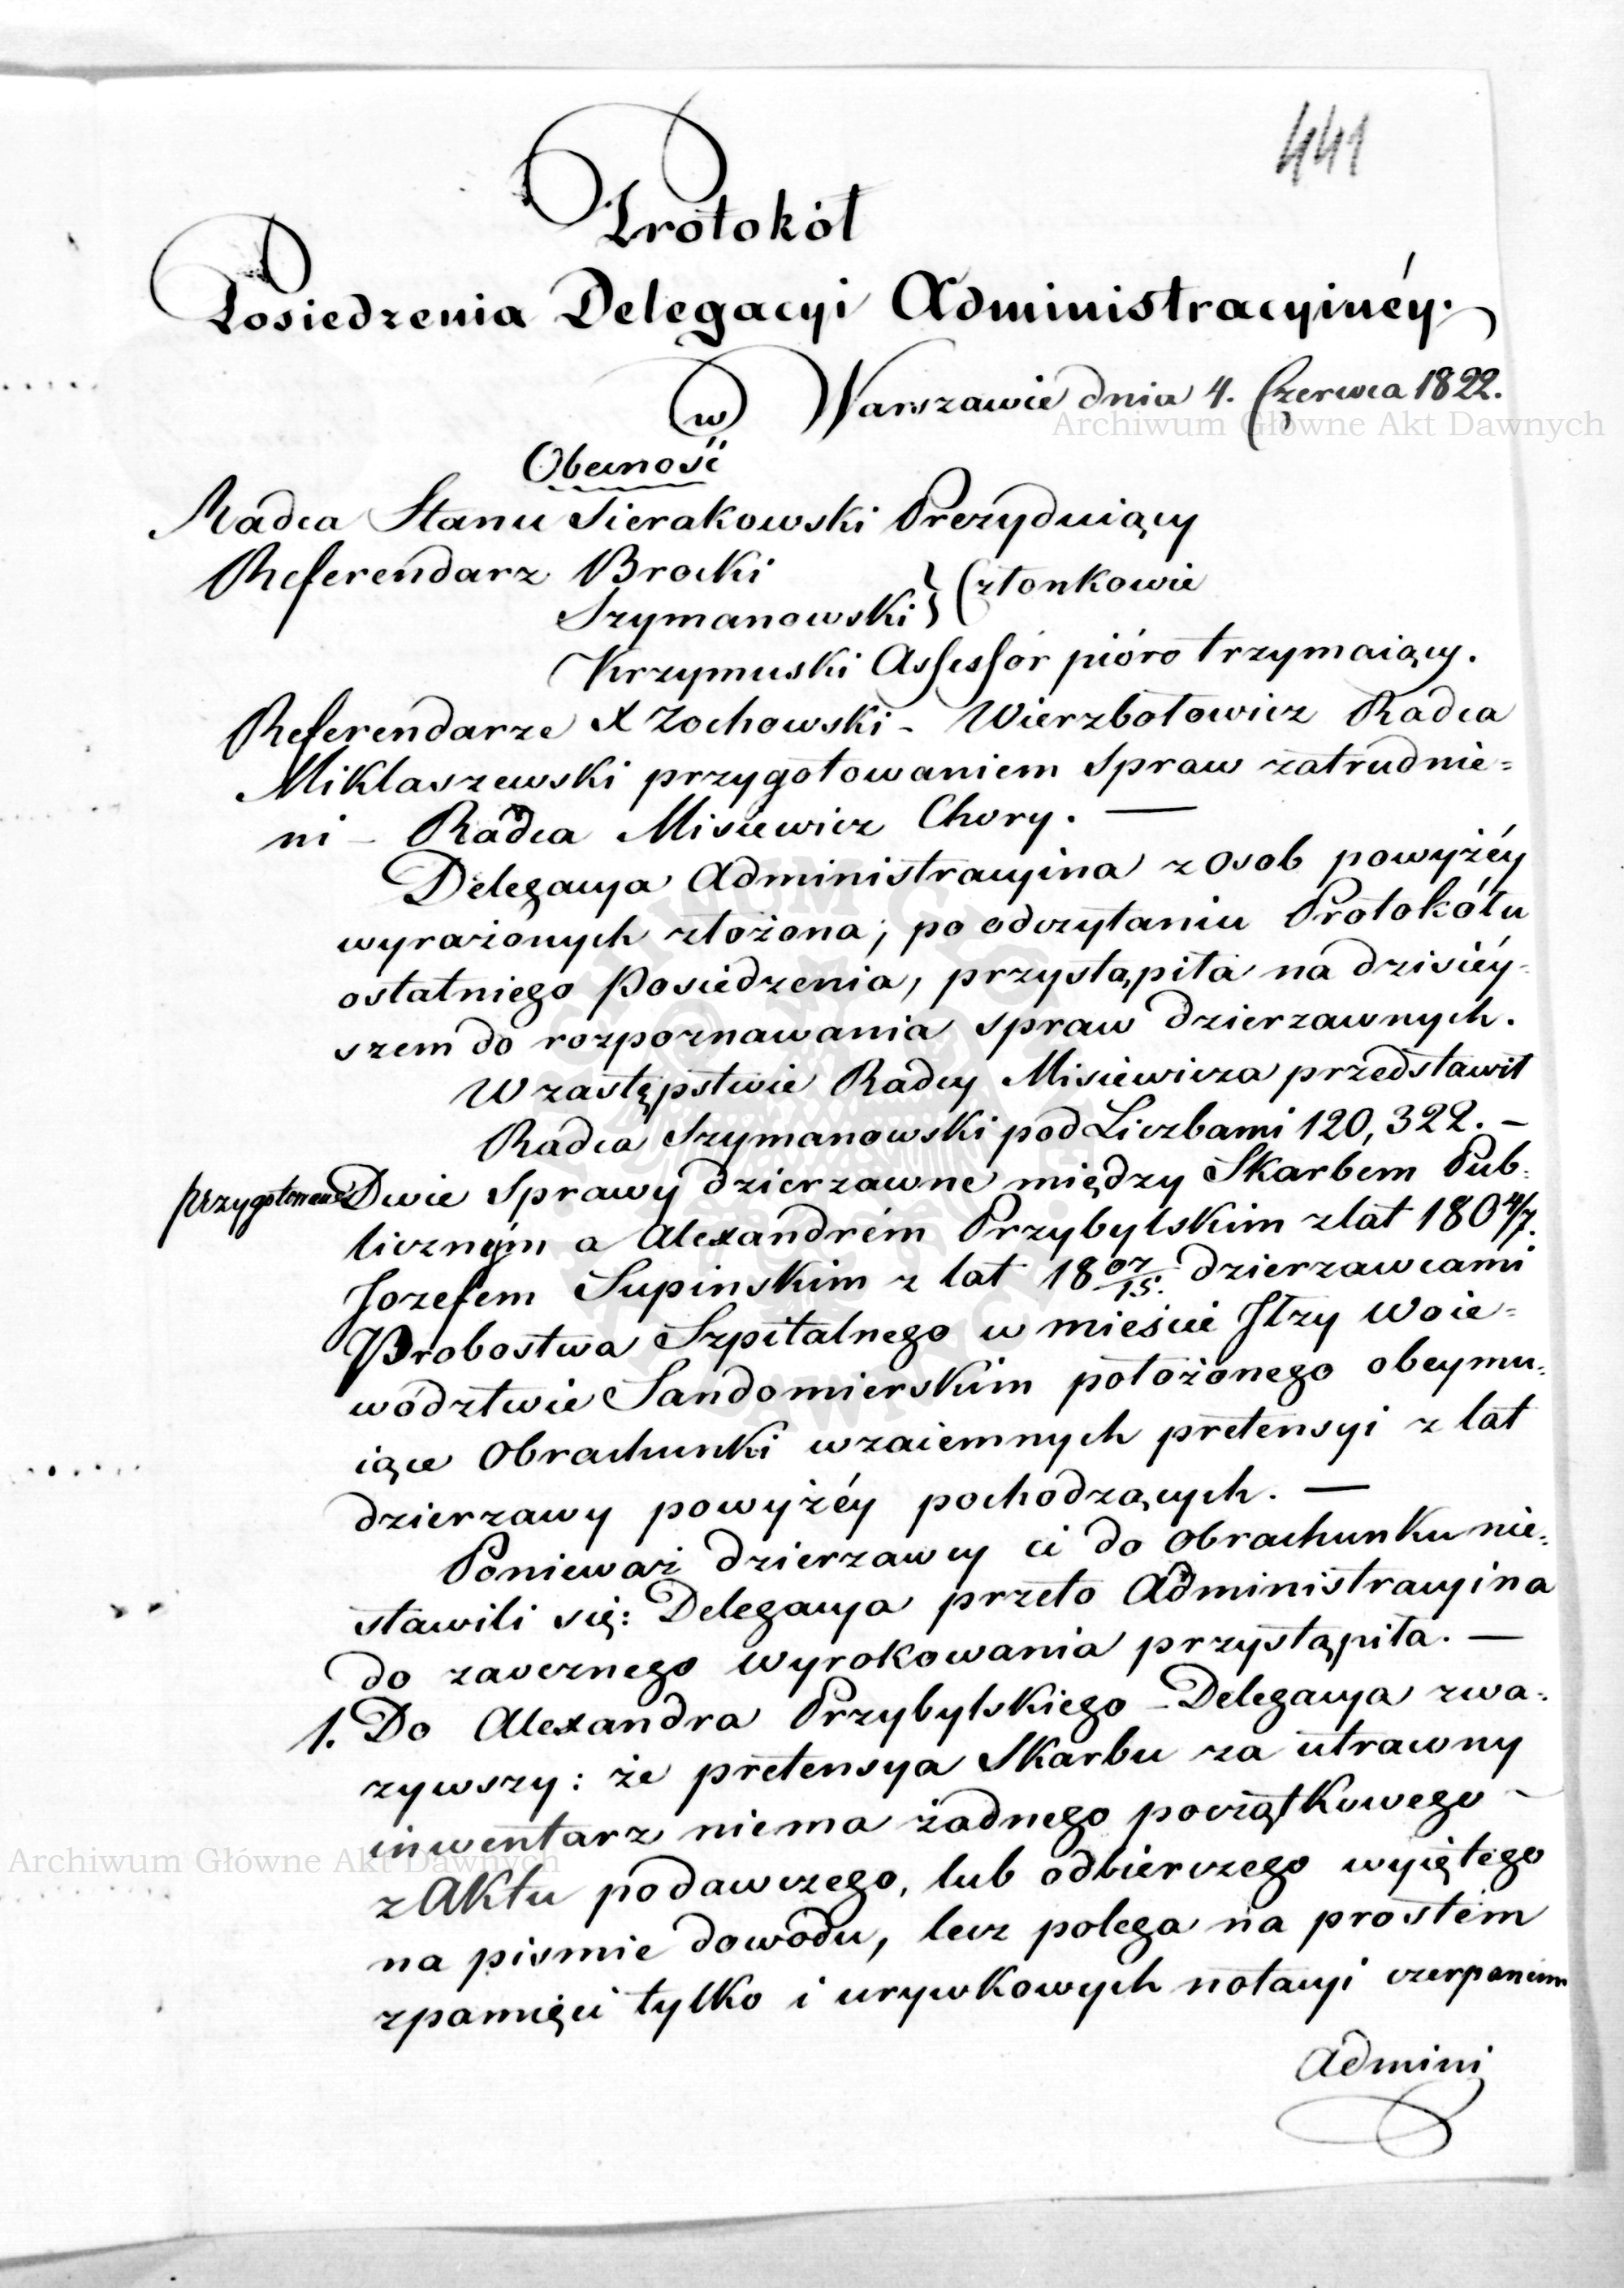 441
Protokół
Posiedzenia Delegacyi Administracyinéy.
w Warszawie dnia 4. Czerwca 1822.
Archiwum Główne Akt Dawnych
Obecność
Radca Stanu Sierakowski Prezyduiący
Referendarz Brocki
Szymanowski } Członkowie
Krzymuski Assessór pióro trzymaiący.
Referendarze X Zochowski - Wierzbołowicz Radca
Miklaszewski przygotowaniem spraw zatrudnie=
ni - Radca Misiewicz Chory. —
Delegacya Administracyina z osob powyżéy
wyrażonych złożona, po odczytaniu Protokółu
ostatniego Posiedzenia, przystąpiła na dzisiéy=
szem do rozpoznawania spraw dzierzawnych.
W zastępstwie Radcy Misiewicza przedstawił
Radca Szymanowski pod Liczbami 120, 322. —
przygotowane Dwie Sprawy dzierzawne między Skarbem Pub=
licznym a Alexandrém Przybylskim z lat 180 4/7.
Jozefem Supinskim z lat 18 07/15. dzierzawcami
Probostwa Szpitalnego w mieście Iłzy Woie=
wództwie Sandomierskim położonego obeymu=
iące Obrachunki wzaiemnych pretensyi z lat
dzierzawy powyżéy pochodzących. —
Ponieważ dzierzawcy ci do obrachunku nie=
stawili się: Delegacya przeto Administracyina
do zaocznego wyrokowania przystąpiła. —
1. Do Alexandra Przybylskiego - Delegacya zwa=
zywszy: że pretensya Skarbu za utracony
inwentarz niema żadnego początkowego -
z Aktu podawczego, lub odbierczego wyiętego
Archiwum Główne Akt Dawnych
na pismie dowodu, lecz polega na prostém
z pamięci tylko i urywkowych notacyi czerpaniem
Admini